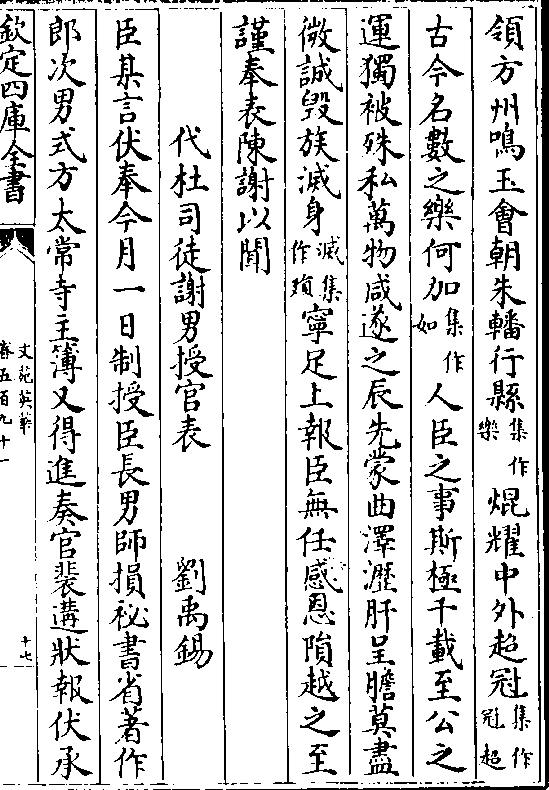 領方州鳴玉會朝朱轓行縣集作樂焜耀中外超冠集作冠超
古今名數之樂何加集作如人臣之事斯極千載至公之
運獨被殊私萬物咸遂之辰先蒙曲澤瀝肝呈膽莫盡
微誠毀族滅身滅集作殞寧足上報臣無任感恩隕越之至
謹奉表陳謝以聞
代杜司徒謝男授官表 劉禹錫
臣某言伏奉今月一日制授臣長男師損祕書省著作
郎次男式方太常寺主簿又得進奏官裴遘狀報伏承
欽定四庫全書
文苑英華
卷五百九十一
十七